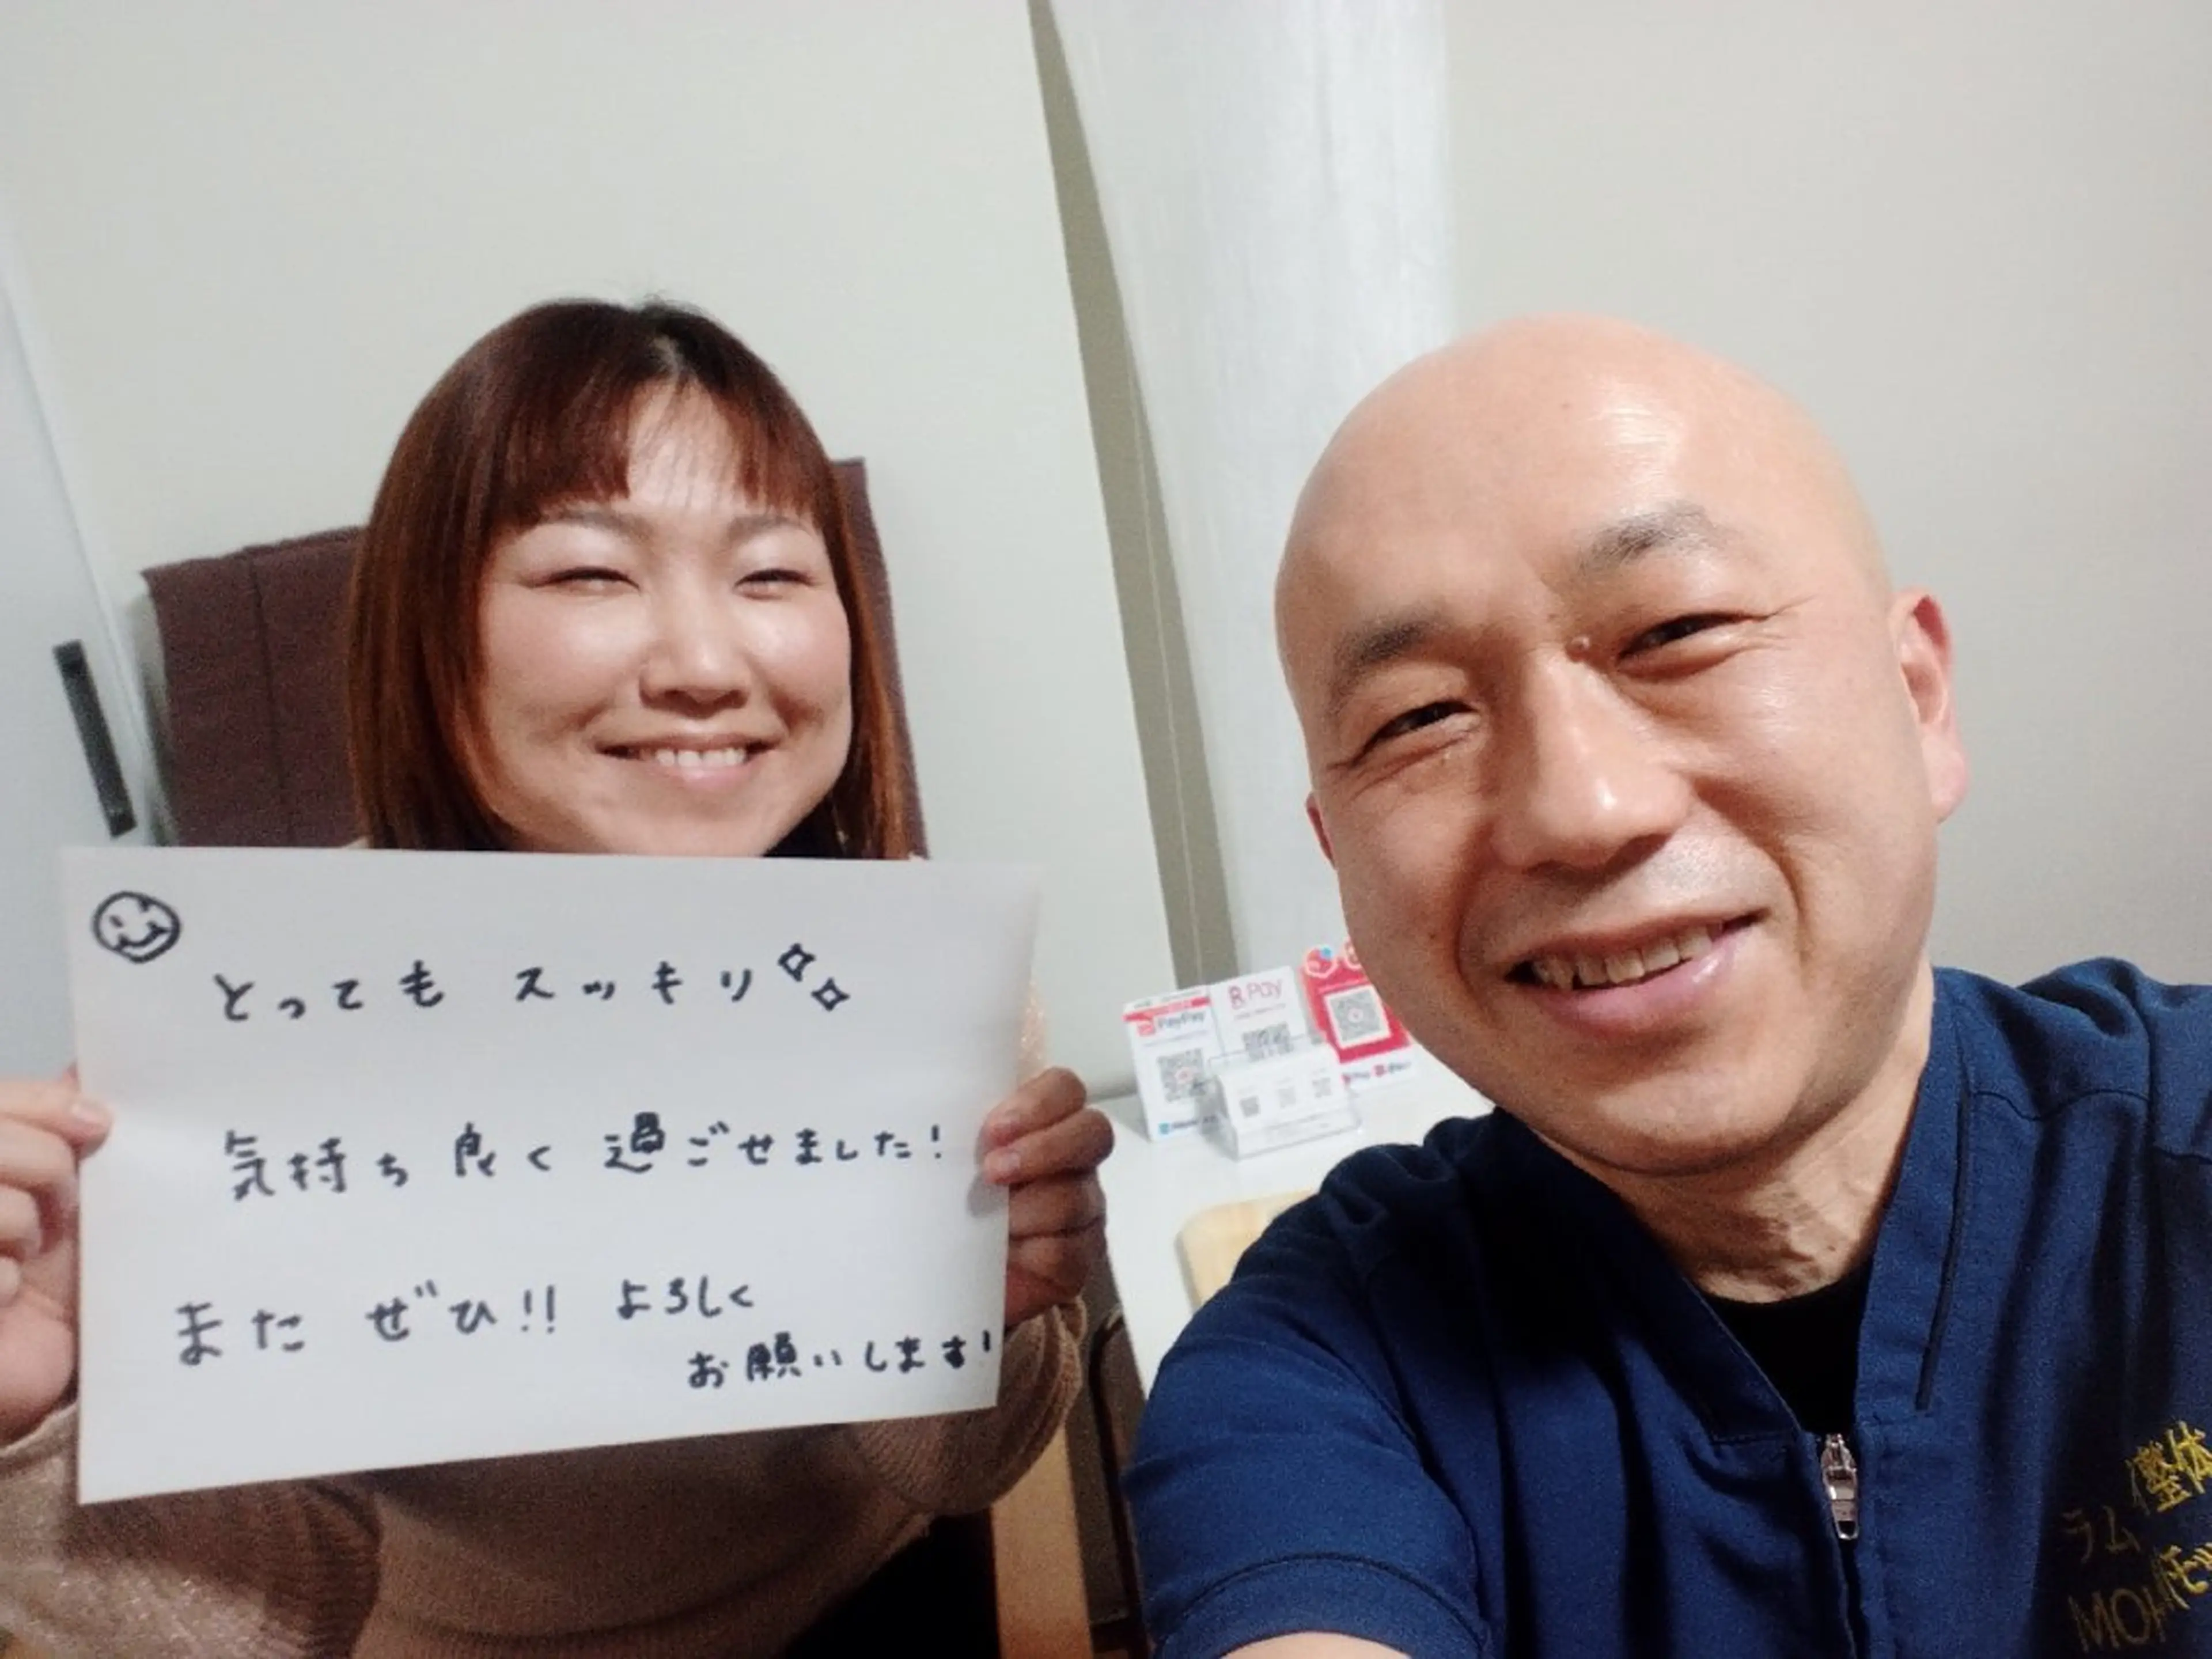 とっても スッキリ
気持ち良く過ごせました!
また ぜひ!! よろしく
お願いします!
PayPay
R Pay
ラム 整体